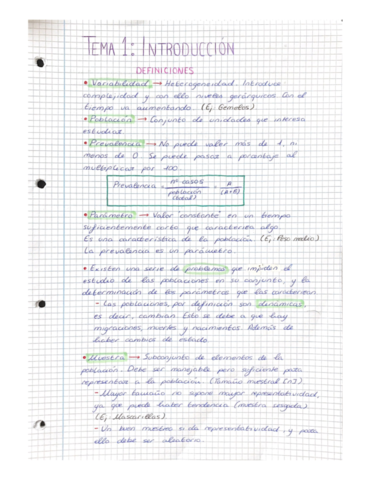 TEMA 1: INTRODUCCIÓN
DEFINICIONES
• Variabilidad → Heterogeneidad. Introduce
complejidad y con ello niveles jerárquicos. Con el
tiempo va aumentando (Ej. Gemelos)
• Población → Conjunto de unidades que interesa
estudiar
• Prevalencia → No puede valer más de 1, ni
menos de 0. Se puede pasar a porcentaje al
multiplicar por 100.
Prevalencia = nº casos / población (total) = A / (A+B)
• Parámetro → Valor "constante" en un tiempo
suficientemente corto que caracteriza algo.
Es una característica de la población (Ej. Peso medio)
La prevalencia es un parámetro.
• Existen una serie de problemas que impiden el
estudio de las poblaciones en su conjunto, y la
determinación de los parámetros que las caracterizan.
- Las poblaciones, por definición son dinámicas,
es decir, cambian. Esto se debe a que hay
migraciones, muertes y nacimientos. Además de
haber cambios de estado.
• Muestra → Subconjunto de elementos de la
población. Debe ser manejable pero suficiente para
representar a la población. (Tamaño muestral (n))
- Mayor tamaño no supone mayor representatividad,
ya que puede haber tendencia (muestra sesgada)
(Ej. Mascarillas)
- Un buen muestreo si da representatividad, y para
ello debe ser aleatorio.